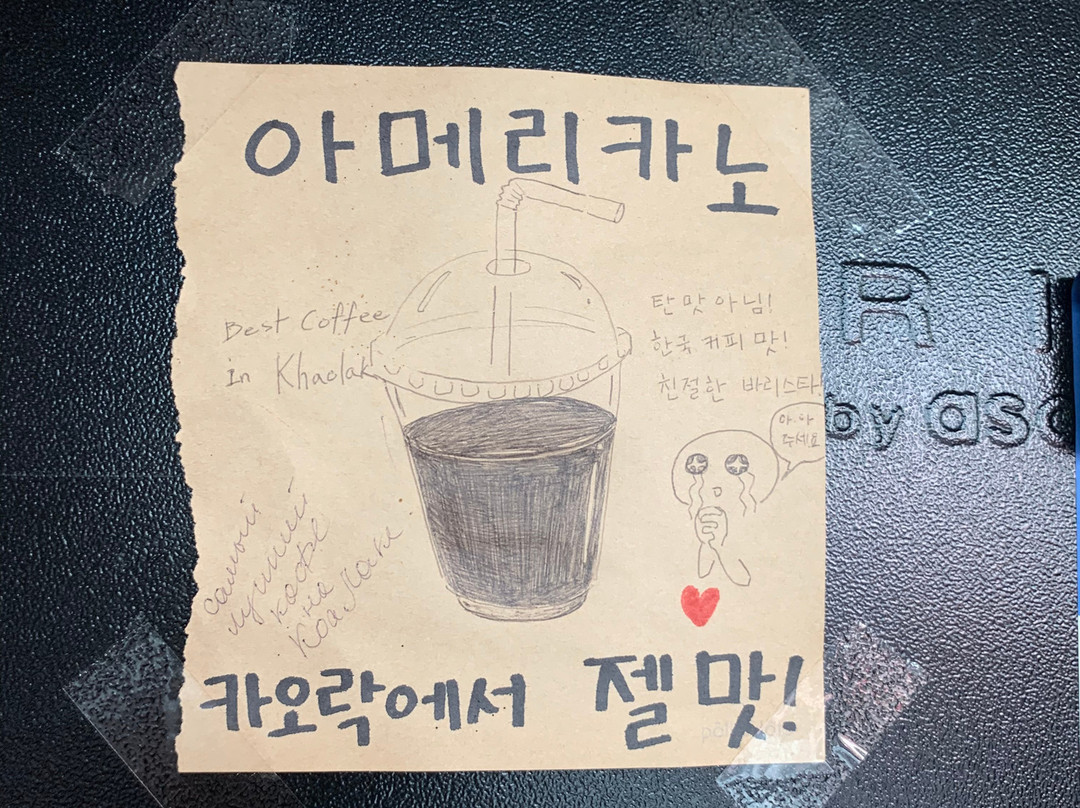 아메리카노
Best Coffee
in Khaolak
탄맛아님!
한국 커피 맛!
친절한 바리스타!
아.아
주세요
самый
лучший
кофе
на
Као Лаке
카오락에서 젤 맛!
R
by